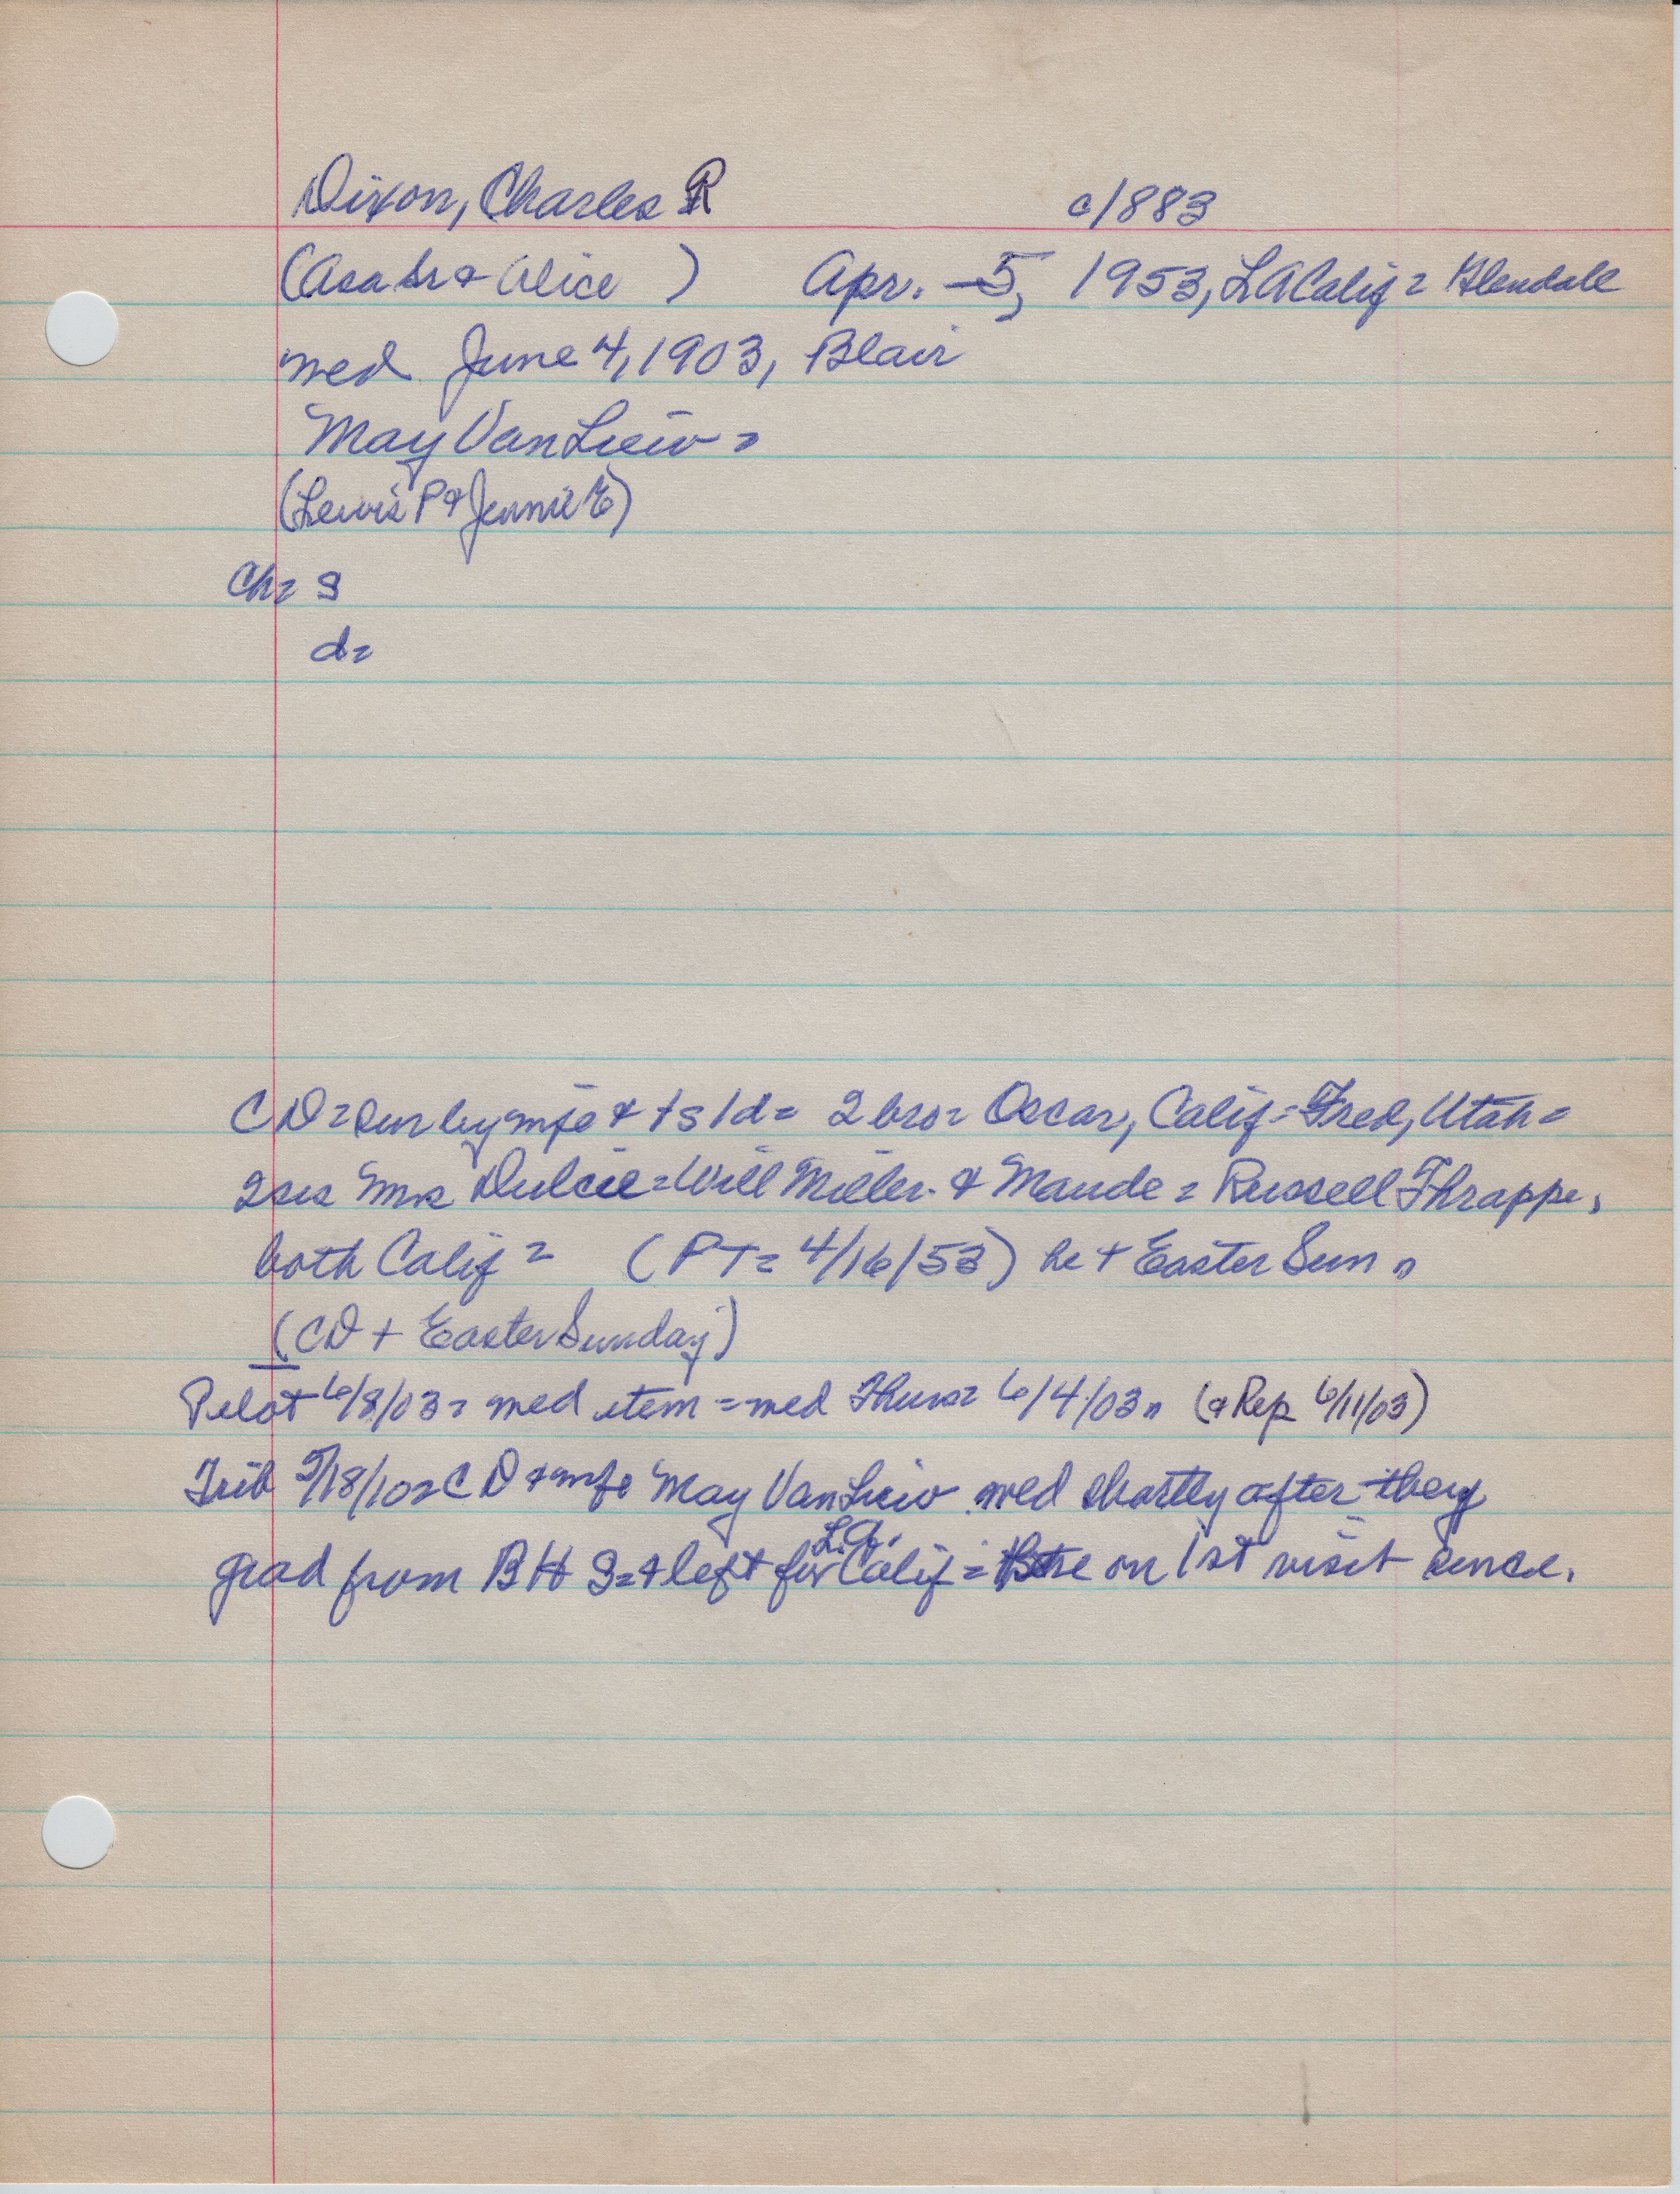 Dixon, Charles R c/883
(Asa Sr & Alice ) Apr. 5, 1953, LA Calif = Glendale
med June 4, 1903, Blair
May Van Liew =
(Lewis P & Jennie E)
Ch = S
d =
CD = sur by wfe & 1s 1d = 2 bro = Oscar, Calif = Fred, Utah =
2 sis Mrs Dulcie = Will Miller. & Maude = Russell Thrappe,
both Calif = (PT = 4/16/53) he + Easter Sun =
(CD + Easter Sunday)
Pilot 6/8/03 = med item = med Thurs = 6/4/03 = (& Rep 6/11/03)
Trib 5/18/10 = CD & wfe May Van Liew med shortly after they
grad from BHS = & left for L.A. Calif = on 1st visit since.